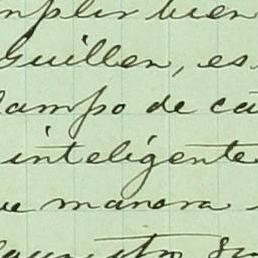 mplir bien
Guillen, es
campo de ca
inteligente
ue manera